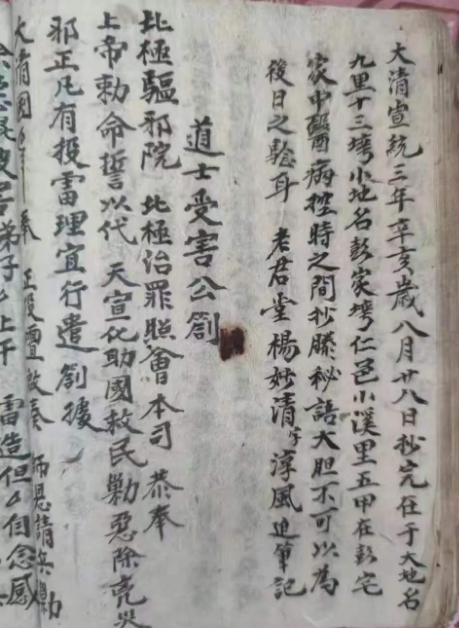 大清宣統三年辛亥歲八月廿八日抄完在于大地名
九里十三塆小地名彭家塆仁邑小溪里五甲在彭宅
家中醫病控時之間抄謄秘語大胆不可以為
後日之驗耳 老君堂楊妙清字淳風迫筆記
道士受害公劄
北極驅邪院 北極治罪照會本司 恭奉
上帝勅命誓以代 天宣化助國救民勦惡除克災
邪正凡有投雷理宜行遣劄據
大清國 奉 正投雷啟奏 師恩請兵勦
被害弟子 上干 雷造但 自念感